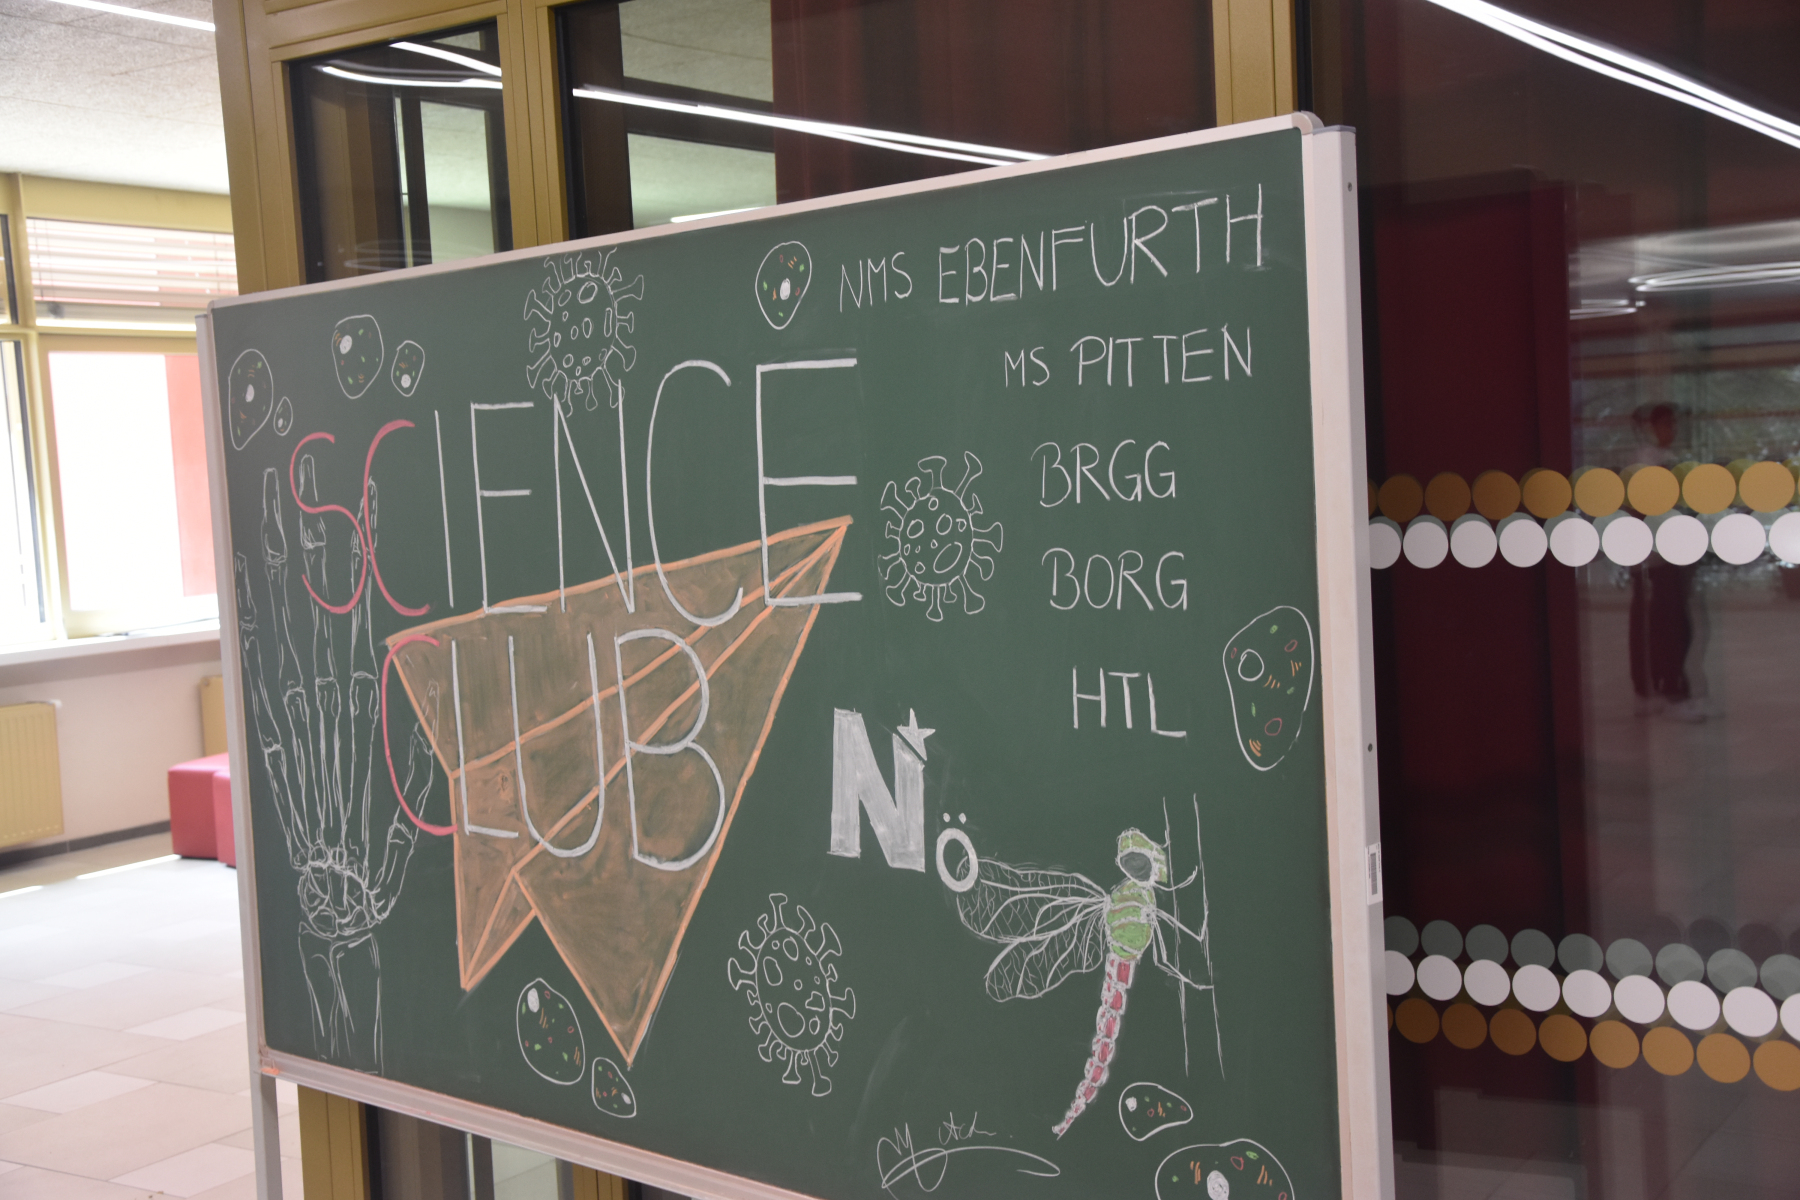 SCIENCE
CLUB
NMS EBENFURTH
MS PITTEN
BRGG
BORG
HTL
NÖ